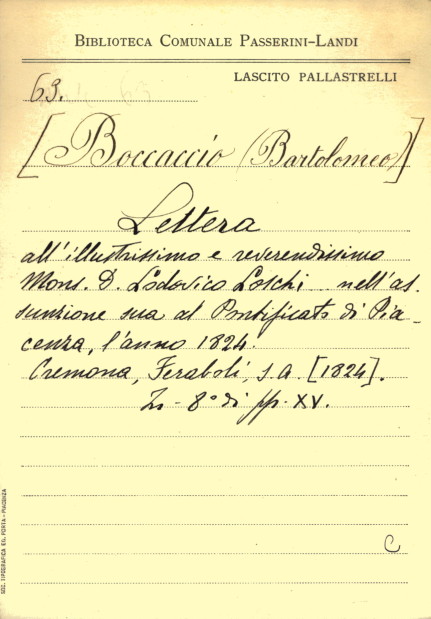 BIBLIOTECA COMUNALE PASSERINI-LANDI
LASCITO PALLASTRELLI
63.
[Boccaccio (Bartolomeo)]
Lettera
all'illustrissimo e reverendissimo
Mons. D. Lodovico Loschi nell'as-
sunzione sua al Pontificato di Pia-
cenza, l'anno 1824.
Cremona, Feraboli, s.a. [1824].
In-8° di pp. XV.
C
SOC. TIPOGRAFICA ED. PORTA - PIACENZA